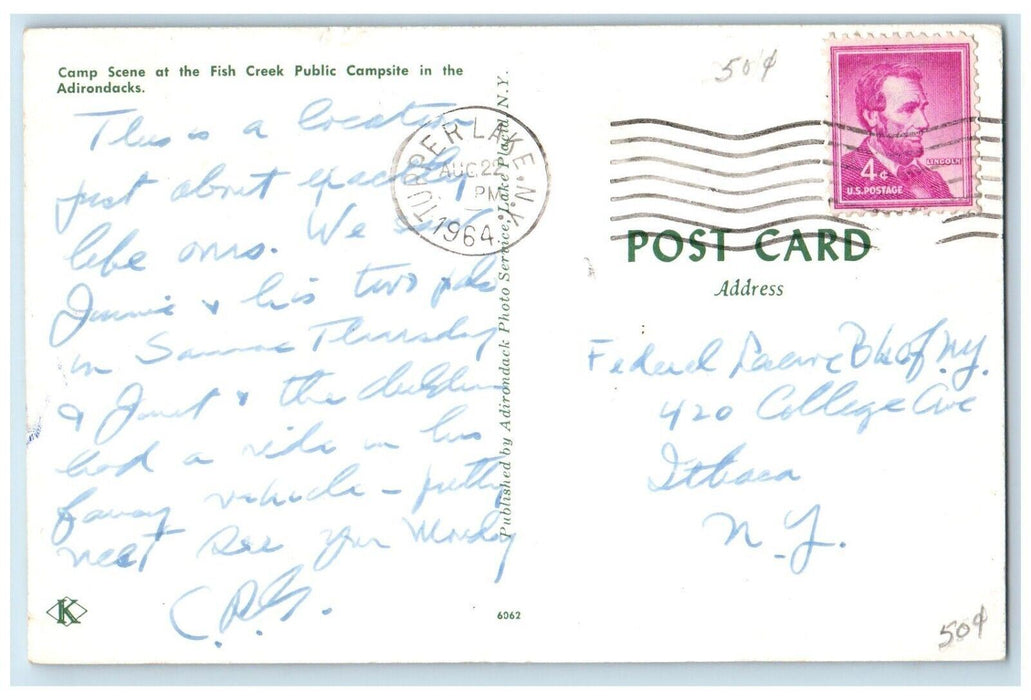 Camp Scene at the Fish Creek Public Campsite in the
Adirondacks.
This is a location
just about exactly
like ours. We saw
Jimmie & his two pals
in Saranac Thursday
& Janet & the children
had a ride in his
fancy vehicle – pretty
neat See you Monday
C.R.G.
K
6062
Published by Adirondack Photo Service, Lake Placid, N.Y.
TUPPER LAKE N.Y.
AUG 22
PM
1964
50¢
LINCOLN
4¢
U.S. POSTAGE
POST CARD
Address
Federal Reserve Bk of N.Y.
420 College Ave
Ithaca
N.Y.
50¢